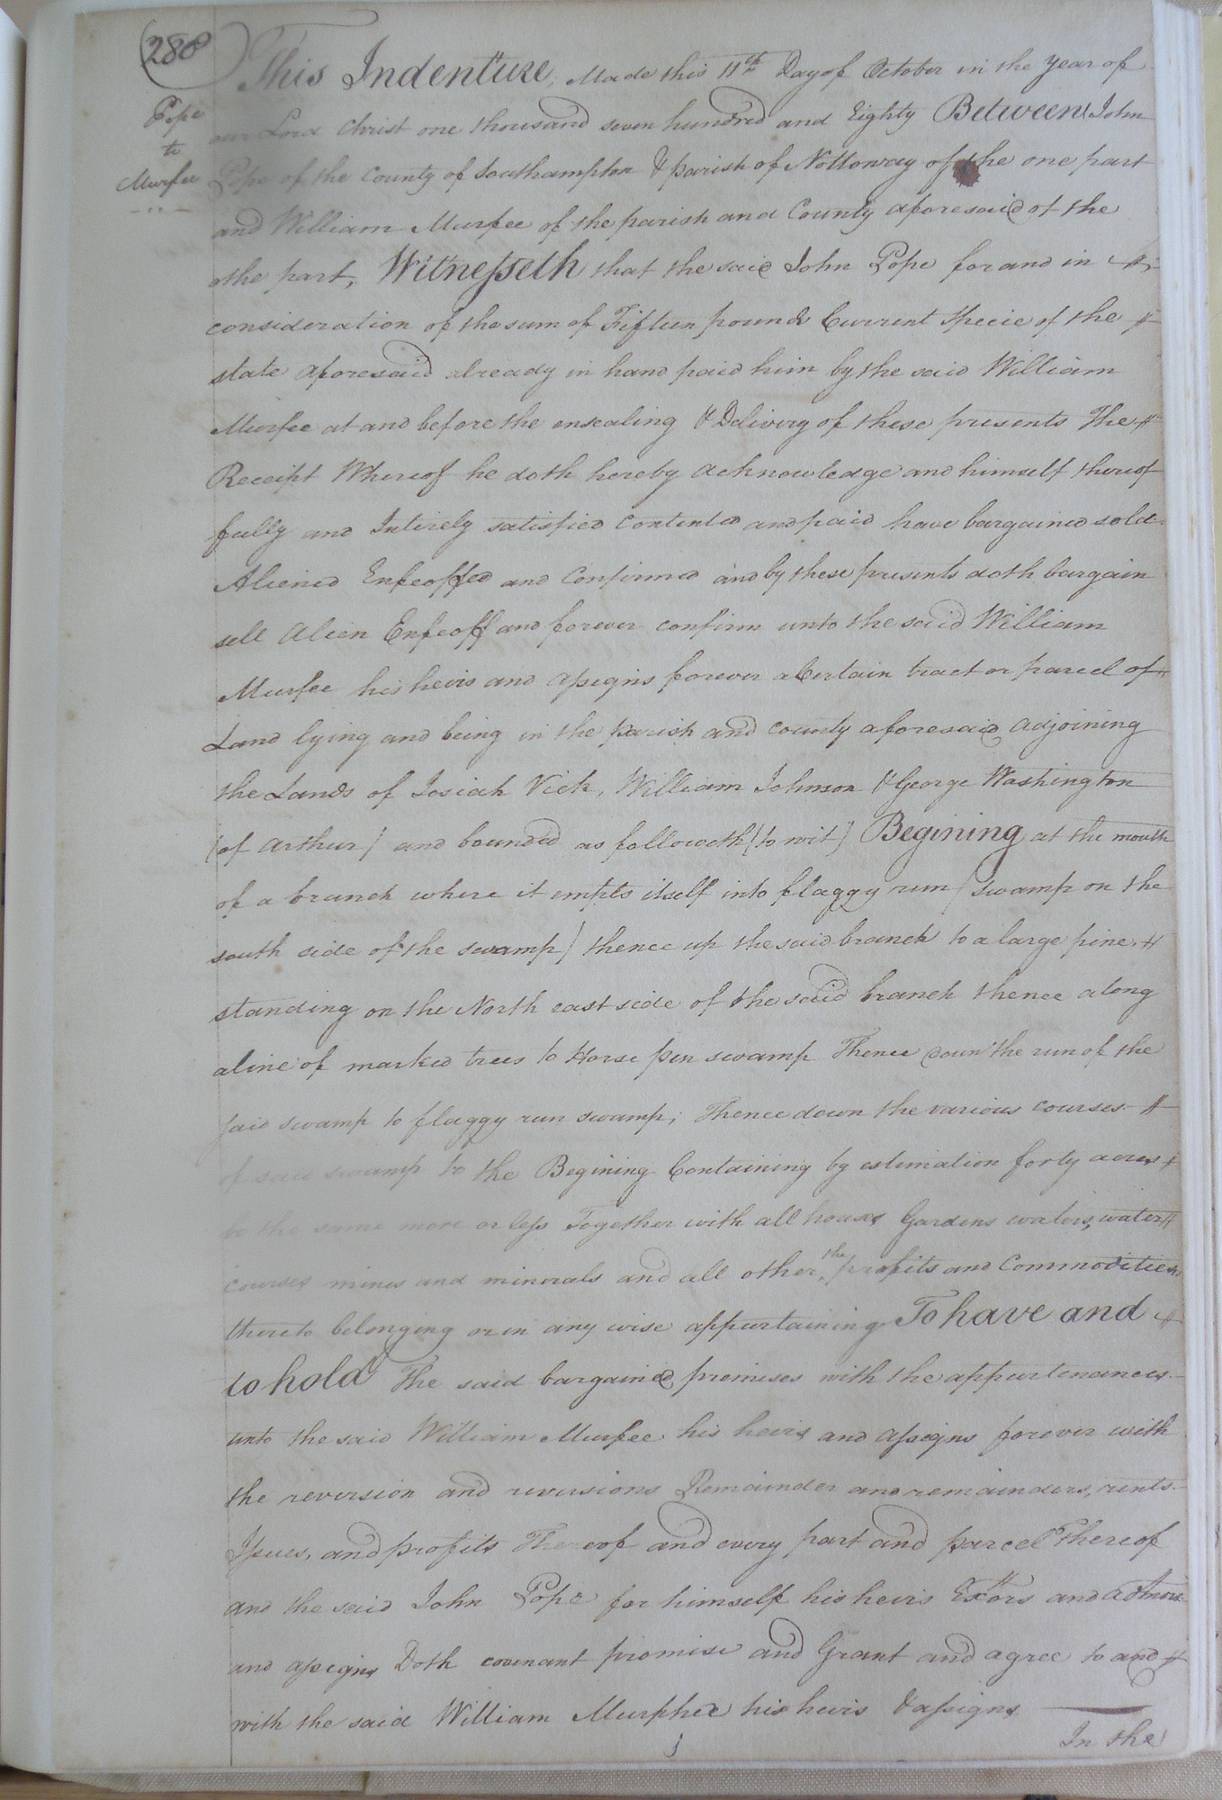 280
Pope
to
Murfee
This Indenture, Made this 11th Day of October in the year of
our Lord Christ one thousand seven hundred and Eighty Between John
Pope of the County of Southampton & parish of Nottoway of the one part
and William Murfee of the parish and County aforesaid of the
othe part, Witnesseth that the said John Pope for and in
consideration of the sum of Fifteen pounds Current Specie of the
state aforesaid already in hand paid him by the said William
Murfee at and before the ensealing & Delivery of these presents The
Receipt Whereof he doth hereby acknowledge and himself thereof
fully and Intirely satisfied contented and paid have bargained sold
Aliened Enfeoffed and Confirmed and by these presents doth bargain
sell Alien Enfeoff and forever confirm unto the said William
Murfee his heirs and assigns forever a Certain tract or parcel of
Land lying and being in the parish and county aforesaid adjoining
the Lands of Josiah Vick, William Johnson & George Washington
(of Arthur) and bounded as followeth (to wit) Begining at the mouth
of a branch where it empts itself into flaggy run (swamp on the
south side of the swamp) thence up the said branch to a large pine
standing on the North east side of the said branch thence along
a line of marked trees to Horse pen swamp Thence down the run of the
said swamp to flaggy run swamp; Thence down the various courses
of said swamp to the Begining Containing by estimation forty acres
be the same more or less Together with all houses Gardens waters, water
courses mines and minerals and all other the profits and Commodities
thereto belonging or in any wise appurtaining To have and
to hold The said bargained premises with the appurtenances
unto the said William Murfee his heirs and assigns forever with
the reversion and reversions Remainder and remainders, rents
Issues, and profits Thereof and every part and parcel Thereof
and the said John Pope for himself his heirs Extors and admors
and assigns Doth covenant promise and Grant and agree to and
with the said William Murphee his heirs & assigns
In the